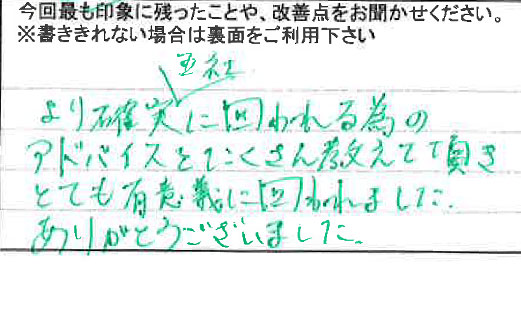 今回最も印象に残ったことや、改善点をお聞かせください。
※書ききれない場合は裏面をご利用下さい
五社
より確実に回われる為の
アドバイスをたくさん教えて頂き
とても有意義に回われました。
ありがとうございました。